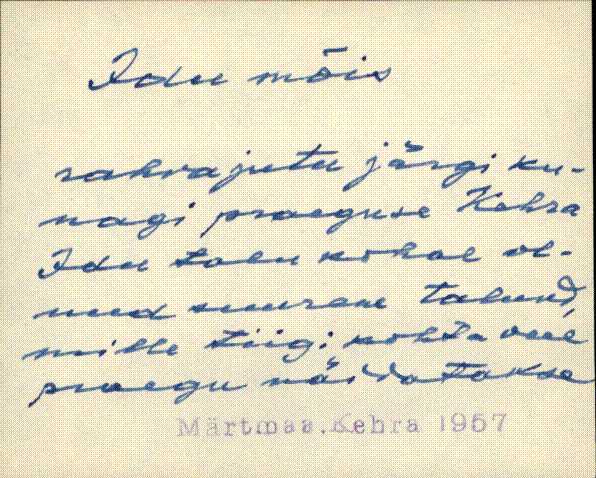 Idu mõis
rahvajutu järgi ku-
nagi praeguse Kehra
Idu talu kohal ol-
nud suurem talund,
mille tiigi kohta veel
praegu näidatakse
Märtmaa.Kehra 1957